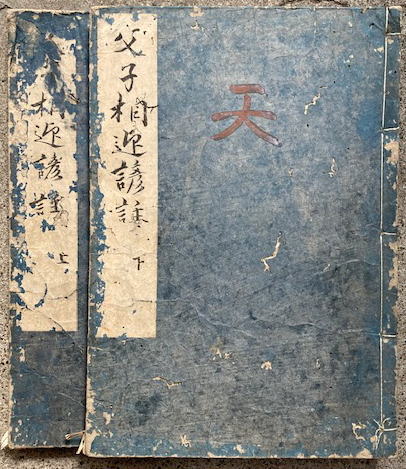 天
父子相迎諺註 下
相迎諺註 上